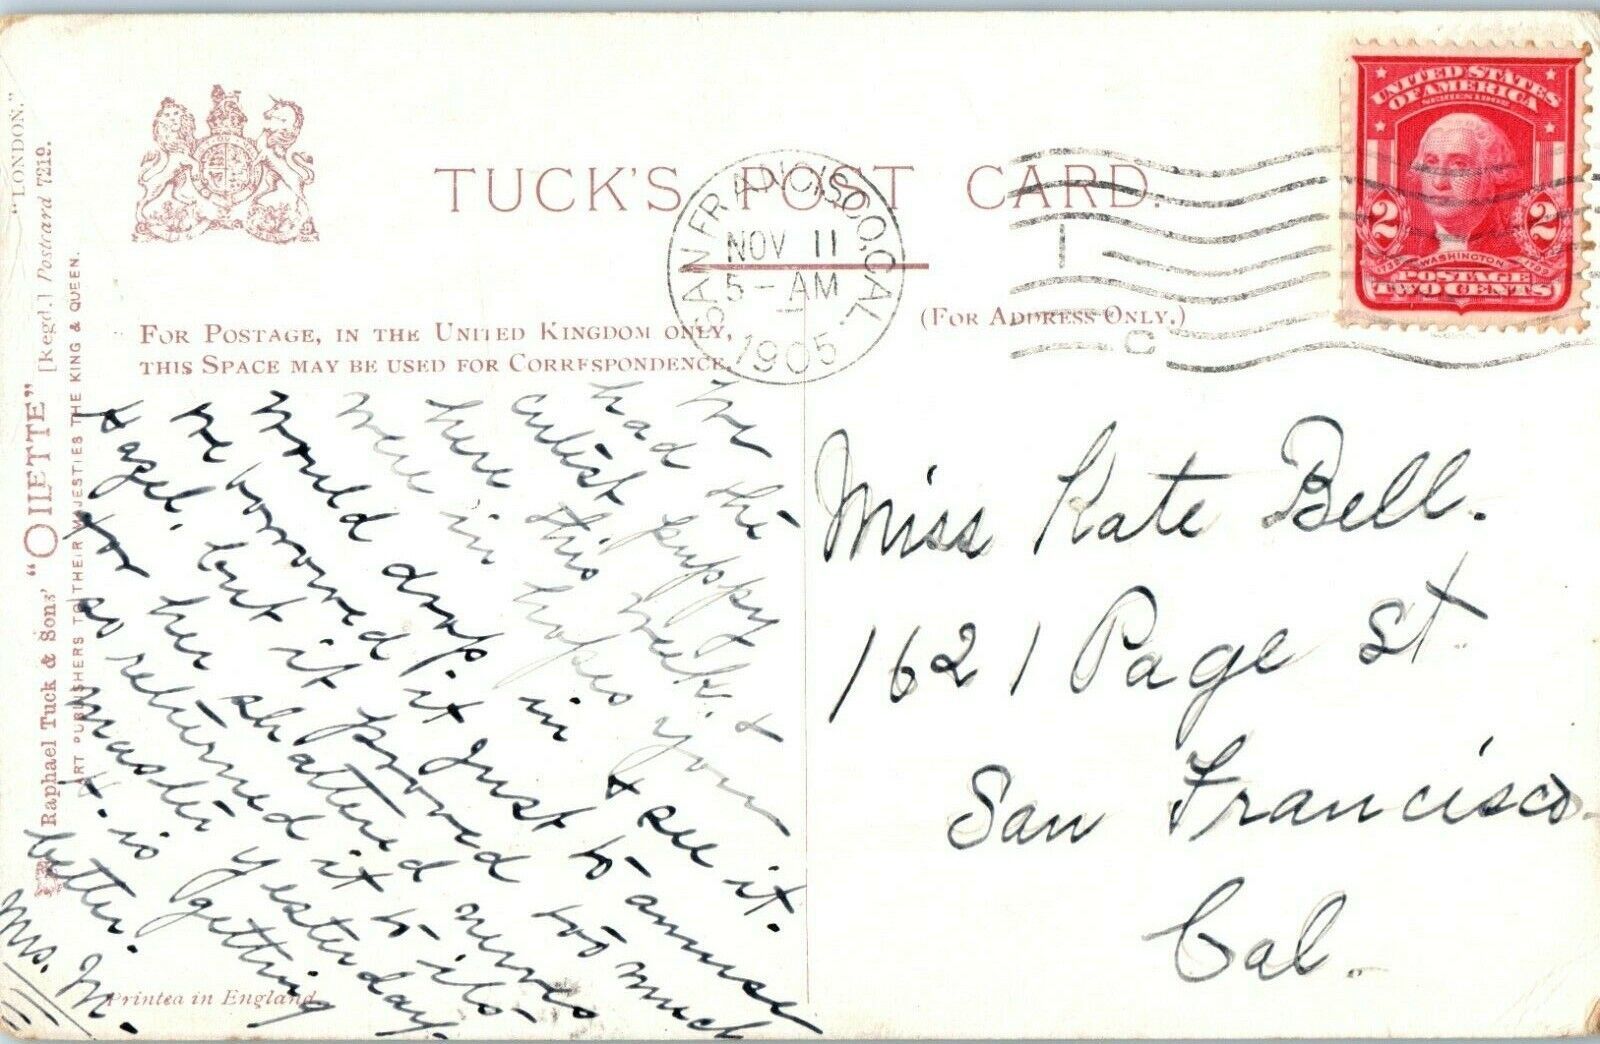 TUCK'S POST CARD.
SAN FRANCISCO, CAL.
NOV 11
5-AM
1905
1
C
UNITED STATES
OF AMERICA
SERIES 1902
2 2
1732 WASHINGTON 1799
POSTAGE
TWO CENTS
FOR POSTAGE, IN THE UNITED KINGDOM ONLY,
THIS SPACE MAY BE USED FOR CORRESPONDENCE.
(FOR ADDRESS ONLY.)
"LONDON."
Raphael Tuck & Sons' "OILETTE" [Regd.] Postcard 7219.
ART PUBLISHERS TO THEIR MAJESTIES THE KING & QUEEN.
We
had the
cutest puppy
here this week &
were in hopes you
would drop in & see it.
We borrowed it just to amuse
Hazel, but it proved too much
for her shattered nerves
so returned it to its
master yesterday.
H. is getting
better.
Mrs. M.
Printed in England
Miss Kate Bell.
1621 Page St
San Francisco
Cal.